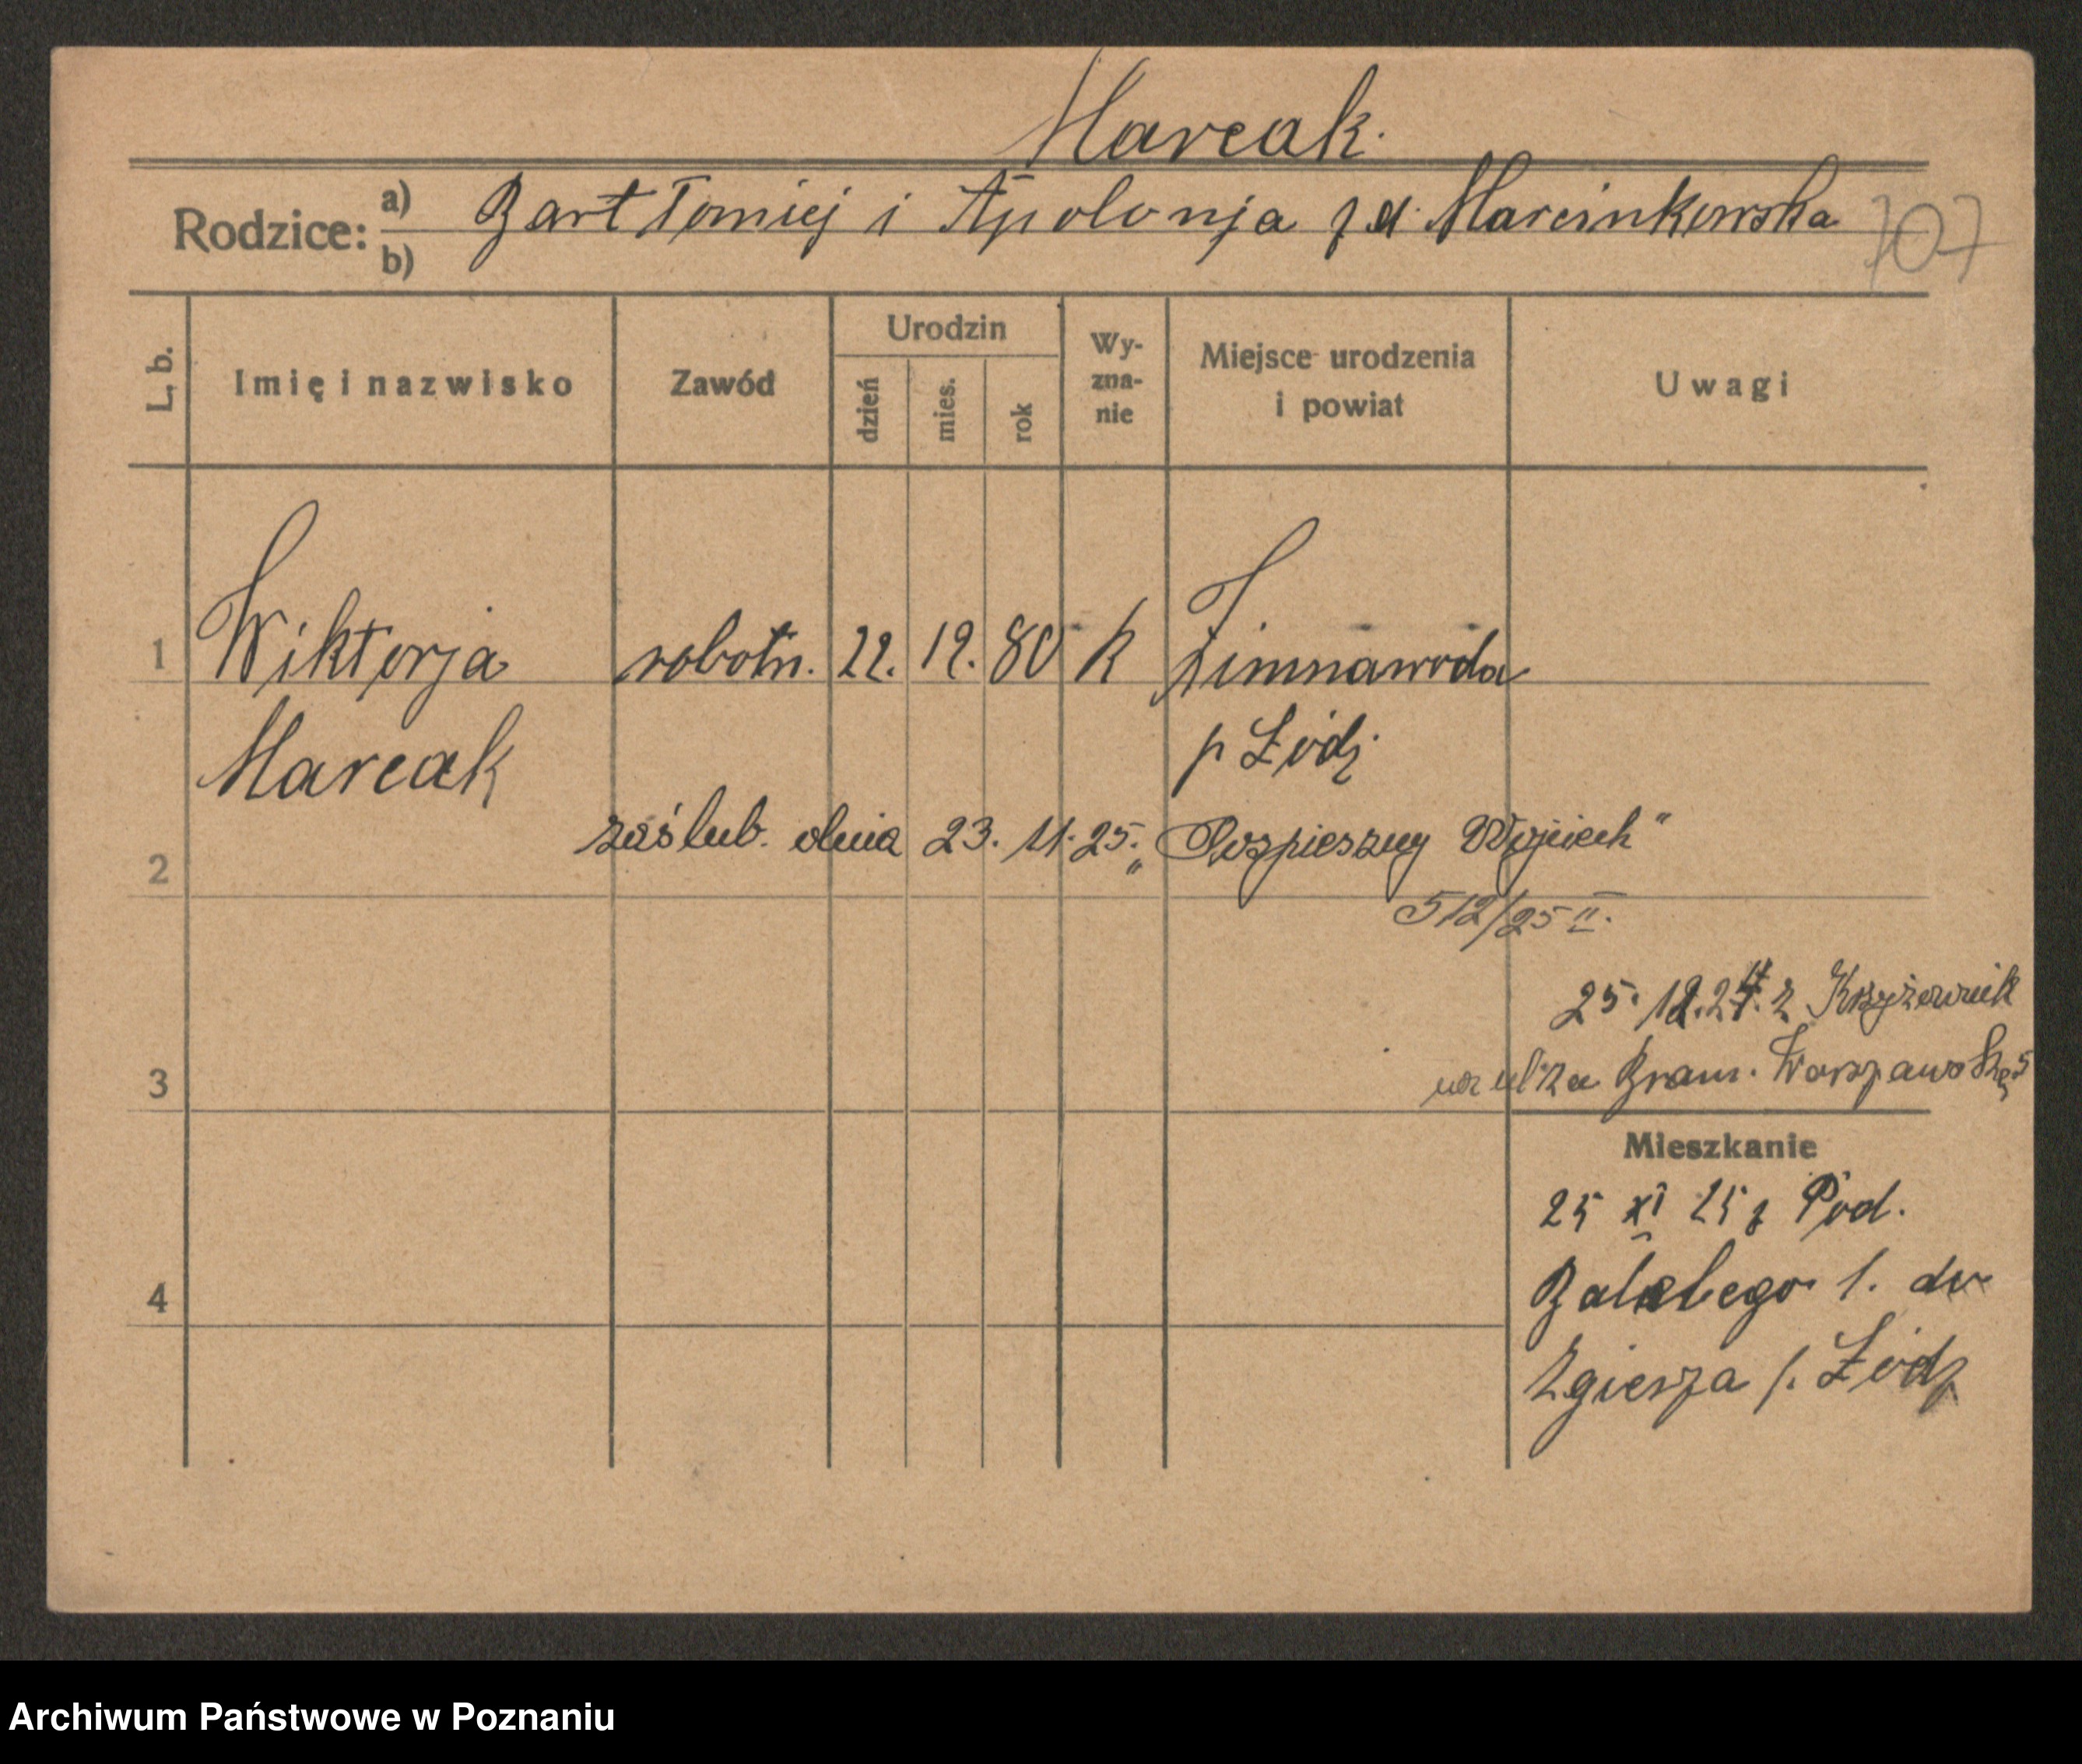 Marcak.
Rodzice: a) Bartłomiej i Apolonja z d. Marcinkowska 707
b)
L. b. Imię i nazwisko Zawód Urodzin dzień mies. rok Wy-zna-nie Miejsce urodzenia i powiat Uwagi
1 Wiktorja robotn. 22. 12. 80 K Zimnawoda
Marcak p Łódź
2 zaślub. dnia 23. 11. 25. „Pospieszny Wojciech"
512/25 II.
25. 12. 24. z Krzyżownik
3 Bram. Warszawską 5
Mieszkanie
25 XI 25 z Pod.
4 1. do
Zgierza p. Łódź
Archiwum Państwowe w Poznaniu